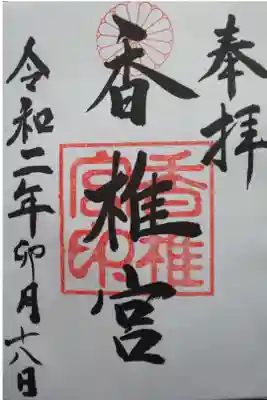 奉拝
香椎宮
香椎宮印
令和二年卯月十八日